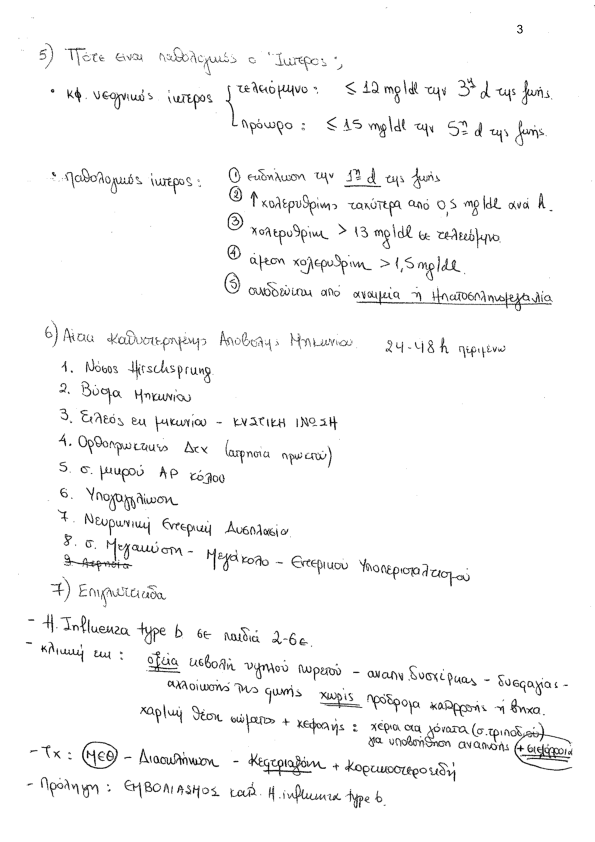 3
5) Πότε είναι παθολογικός ο Ίκτερος;
• κφ. νεογνικός ίκτερος τελειόμηνο: ≤ 12 mg/dl την 3η d της ζωής.
πρόωρο: ≤ 15 mg/dl την 5η d της ζωής.
• παθολογικός ίκτερος: ① εκδήλωση την 1η d της ζωής
② ↑ χολερυθρίνης ταχύτερα από 0,5 mg/dl ανά h.
③ χολερυθρίνη > 13 mg/dl σε τελειόμηνο.
④ άμεση χολερυθρίνη > 1,5 mg/dl.
⑤ συνοδεύεται από αναιμία ή Ηπατοσπληνομεγαλία
6) Αίτια Καθυστερημένης Αποβολής Μηκωνίου. 24-48 h περιμένω
1. Νόσος Hirschsprung.
2. Βύσμα Μηκωνίου
3. Ειλεός εκ μηκωνίου - ΚΥΣΤΙΚΗ ΙΝΩΣΗ
4. Ορθοπρωκτικές Δεχ (ατρησία πρωκτού)
5. σ. μικρού ΑΡ κόλου
6. Υπογαγγλίωση
7. Νευρωνική Εντερική Δυσπλασία.
8. σ. Μεγακύστη - Μεγάκολο - Εντερικού Υποπερισταλτισμού
9. Ατρησία
7) Επιγλωττίτιδα
- H. Influenza type b σε παιδιά 2-6ε.
- κλινική εικ: οξεία εισβολή υψηλού πυρετού - αναπν. δυσχέρειας - δυσφαγίας -
αλλοίωσης της φωνής χωρίς πρόδρομα καταρροής ή βήχα.
χαρ/κή θέση σώματος + κεφαλής: χέρια στα γόνατα (σ. τριπόδου)
για υποβοήθηση αναπνοής + σιελόρροια
- Τx: ΜΕΘ - Διασωλήνωση - Κεφτριαξόνη + Κορτικοστεροειδή
- Πρόληψη: ΕΜΒΟΛΙΑSΜΟS κατά H. influenza type b.